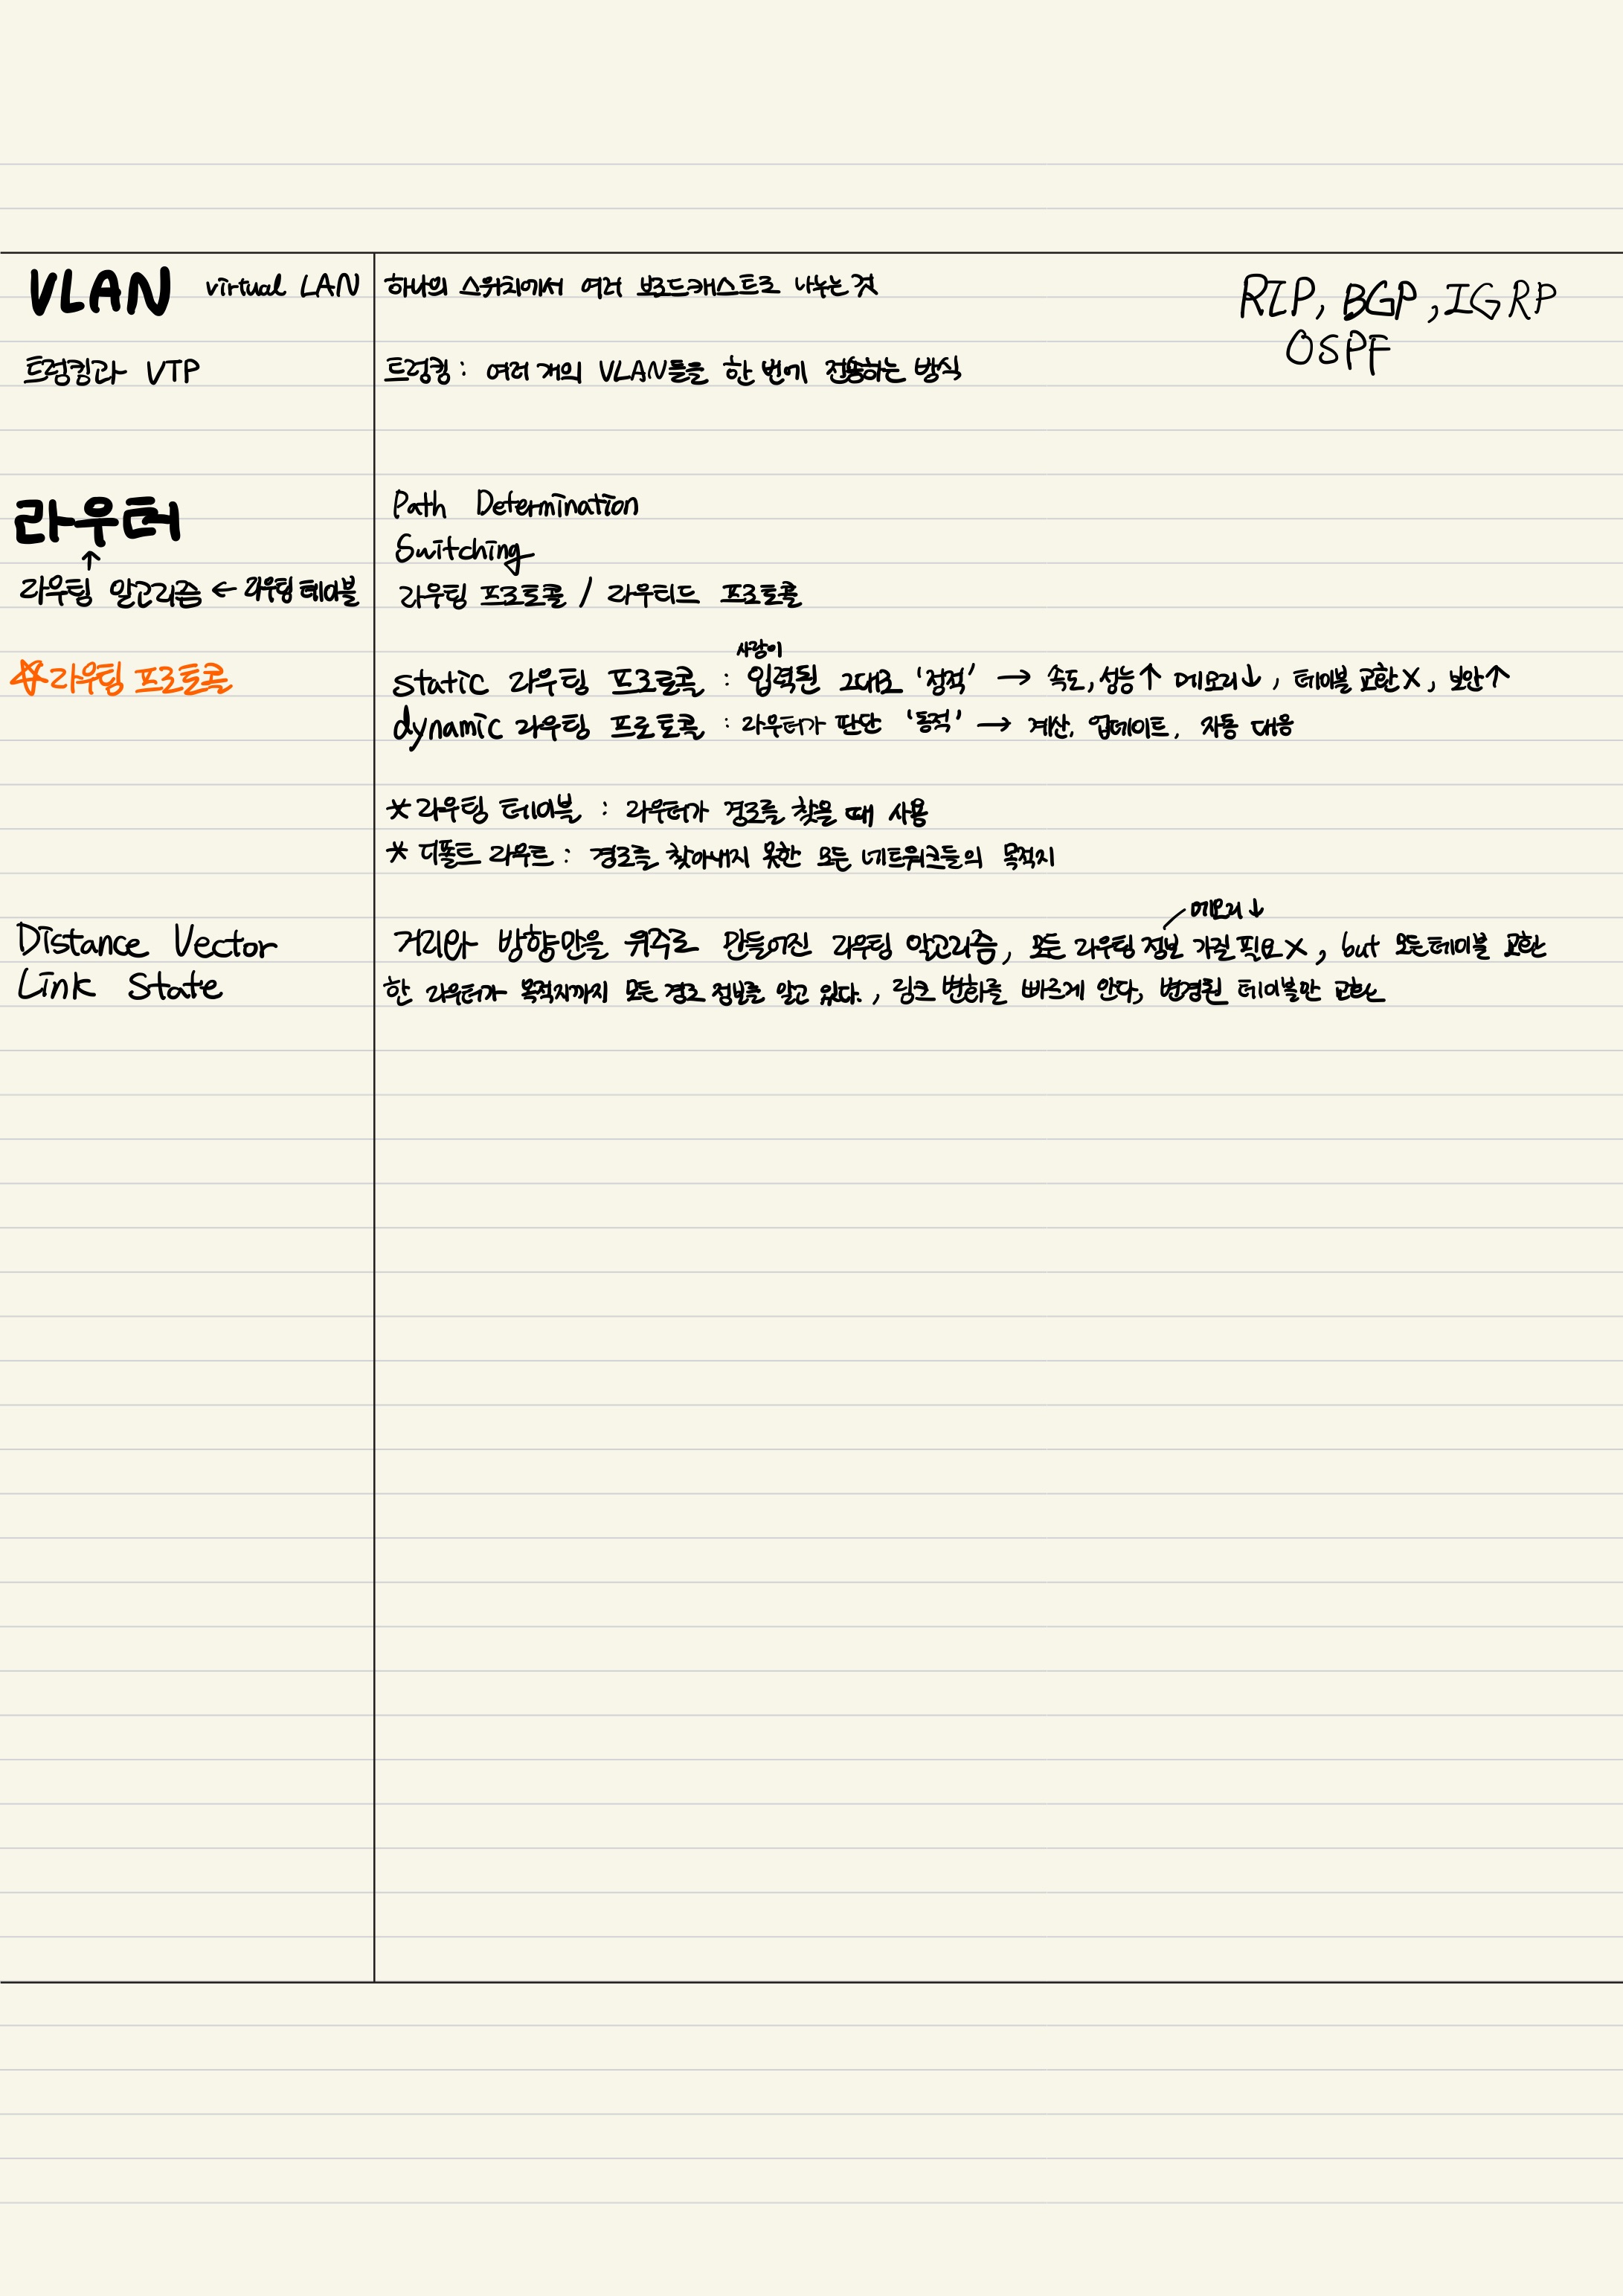 VLAN virtual LAN 하나의 스위치에서 여러 브로드캐스트로 나누는 것
RIP, BGP, IGRP
OSPF
트렁킹과 VTP 트렁킹 : 여러 개의 VLAN들을 한 번에 전송하는 방식
라우터 Path Determination
↑ Switching
라우팅 알고리즘 ← 라우팅 테이블 라우팅 프로토콜 / 라우티드 프로토콜
사람이
☆라우팅 프로토콜 static 라우팅 프로토콜 : 입력된 그대로 '정적' → 속도, 성능↑ 메모리↓, 테이블 교환X, 보안↑
dynamic 라우팅 프로토콜 : 라우터가 판단 '동적' → 계산, 업데이트, 자동 대응
* 라우팅 테이블 : 라우터가 경로를 찾을 때 사용
* 디폴트 라우트 : 경로를 찾아내지 못한 모든 네트워크들의 목적지
메모리↓
Distance Vector 거리와 방향만을 위주로 만들어진 라우팅 알고리즘, 모든 라우팅 정보 가질 필요X, but 모든 테이블 교환
Link State 한 라우터가 목적지까지 모든 경로 정보를 알고 있다., 링크 변화를 빠르게 안다, 변경된 테이블만 교환